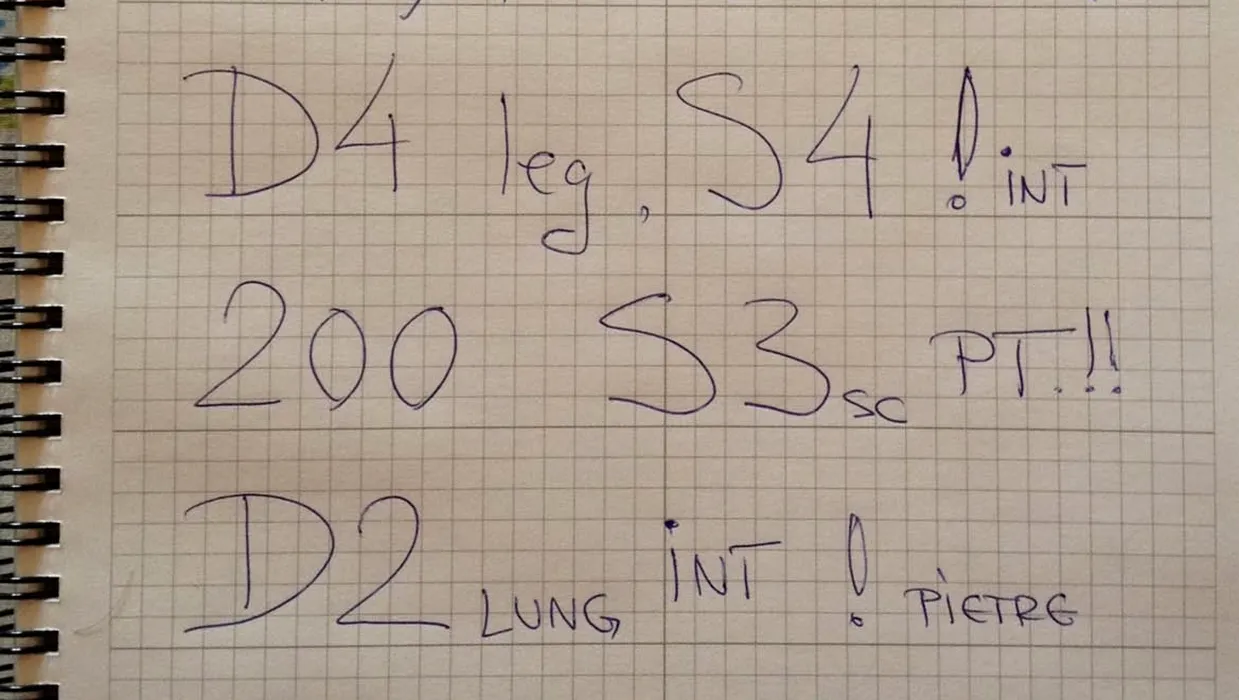 D4 leg, S4 ! iNT
200 S3 sc PT.!!
D2 LUNG iNT ! PiETRE